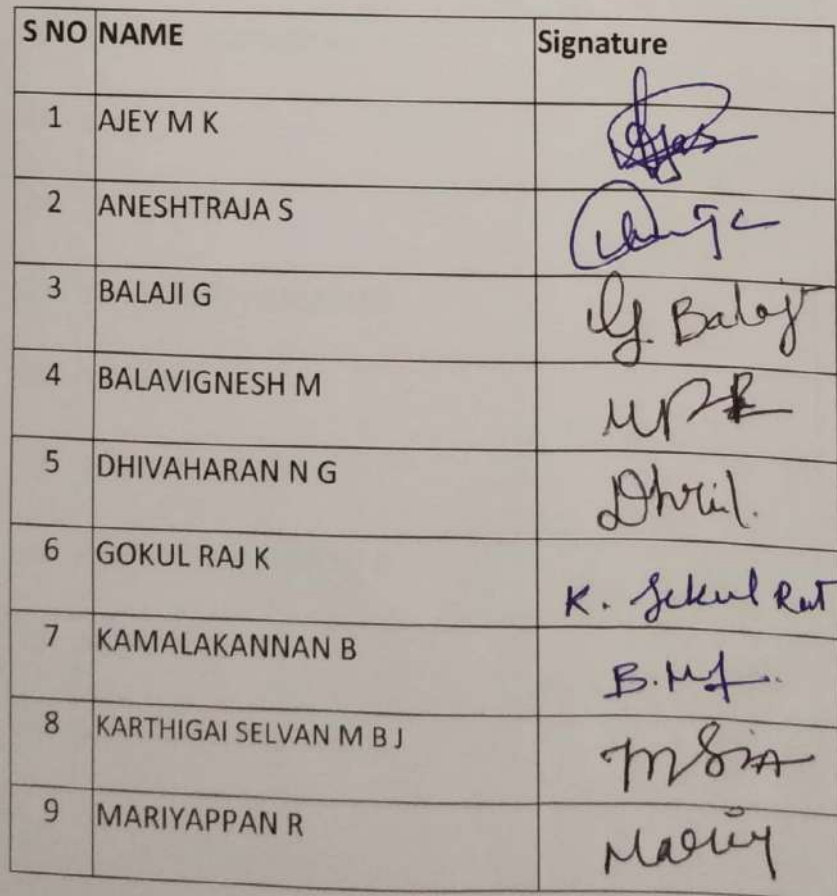 S NO NAME Signature
1 AJEY M K
2 ANESHTRAJA S
3 BALAJI G G. Balaji
4 BALAVIGNESH M
5 DHIVAHARAN N G
6 GOKUL RAJ K K. Gokul Raj
7 KAMALAKANNAN B
8 KARTHIGAI SELVAN M B J
9 MARIYAPPAN R Mariy